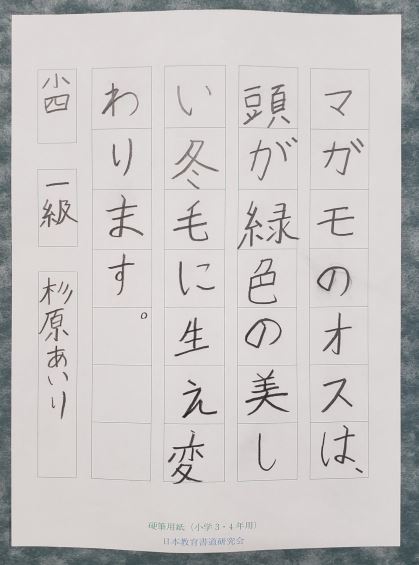 マガモのオスは、
頭が緑色の美し
い冬毛に生え変
わります。
小四 一級 杉原あいり
硬筆用紙（小学3・4年用）
日本教育書道研究会